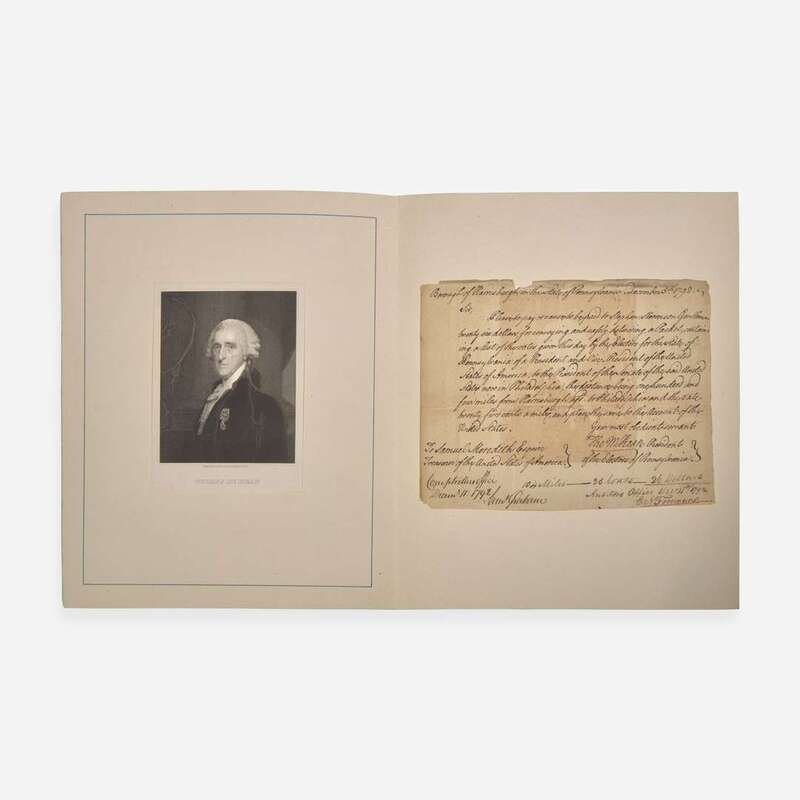 THOMAS MC KEAN
Borough of Harrisburgh, in the State of Pennsylvania December 5th. 1792.
Sir,
Please to pay or cause to be paid to Stephen Stevenson Gentleman
twenty six dollars, for conveying and safely delivering a Packet, contain-
ing a list of the votes given this day by the Electors for the State of
Pennsylvania of a President and Vice President of the United
States of America, to the President of the Senate of the said United
States now in Philadelphia; the distance being one hundred and
four miles from Harrisburgh afsd. to Philadelphia and the rate
twenty five cents a mile; and place the same to the Account of the
United States.
Your most obedient servant
To Samuel Meredith Esquire
Treasurer of the United States of America.
Tho M:Kean President
of the Electors of Pennsylvania.
Comptrollers Office
Decemr. 11. 1792
104 Miles — 25 Cents — 26 Dollars
Auditors Office Decr 11th 1792